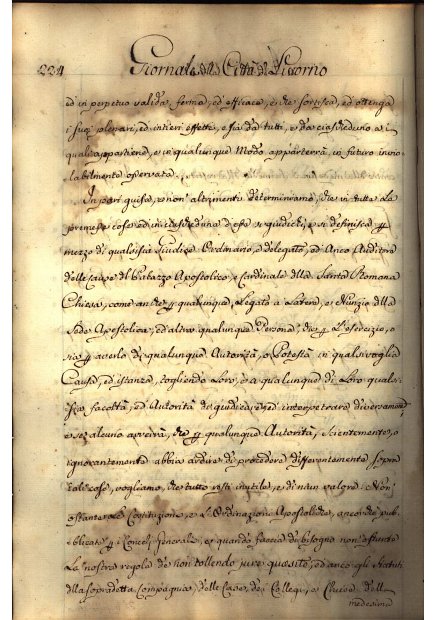 224 Giornale della Città di Livorno
ed in perpetuo valida, ferma, ed efficace, e che sortisca, ed ottenga
i suoi plenari, ed intieri effetti, e sia da tutti, e da ciascheduno a i
quali appartiene, e in qualunque Modo apparterrà in futuro invio
labilmente osservata.
In pari guisa, e non altrimenti determiniamo, che in tutte le
premesse cose, ed in ciascheduna d'esse si giudichi, e si definisca p
mezzo di qualsisia Giudice Ordinario, e delegato, ed Anco Auditore
delle Cause del Palazzo Apostolico, e Cardinale della Santa Romana
Chiesa, come anche p qualunque Legato a Latere, e Nunzio della
Sede Apostolica, ed altra qualunque Persona, che p l'esercizio, o
sia p averlo di qualunque Autorità, o Potestà in qualsivoglia
Causa, ed istanza, togliendo Loro, e a qualunque di Loro quals
isia facoltà, ed Autorità di giudicare, ed interpetrare diversamente
e se alcuno averrà, che p qualunque Autorità, scientemente, o
ignorantemente abbia ardire di procedere differentemente sopra
tali cose, vogliamo, che tutto resti inutile, e di niun valore: Non
ostante le Costituzione, e L'Ordinazioni Apostoliche, ancorche pub
blicate p i Concilj Generali, e quando faccia di bisogno non ostante
La nostra regola de non tollendo jure quæsito, ed anco gli statuti
della sopradetta Compagnia, delle Case, dei Collegi, e Chiese delle
medesima